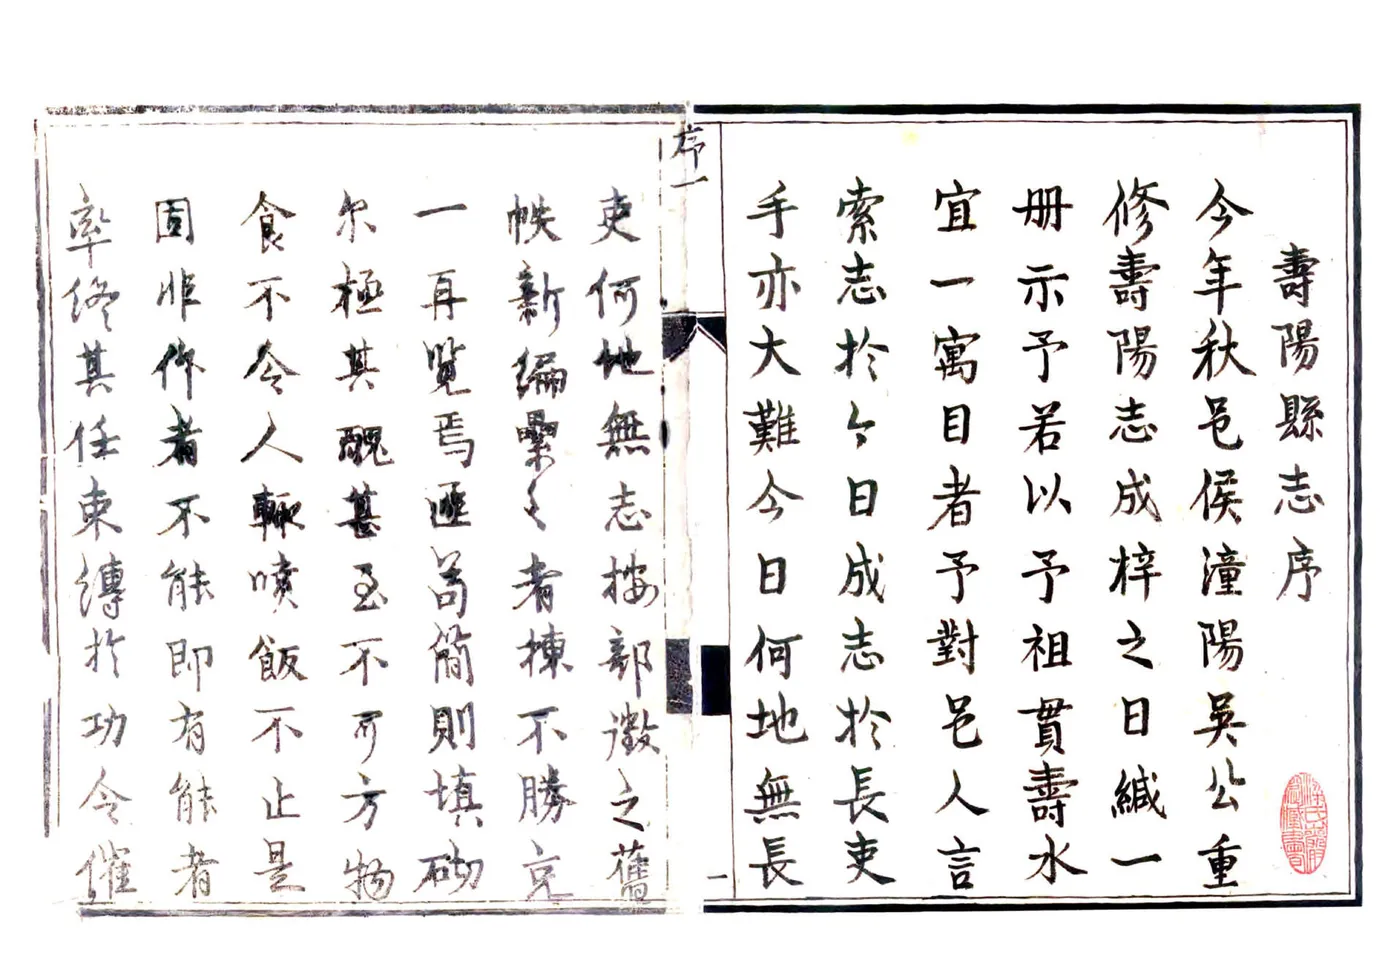 壽陽縣志序
今年秋邑侯潼陽吳公重
修壽陽志成梓之日緘一
册示予若以予祖貫壽水
宜一寓目者予對邑人言
索志於今日成志於長吏
手亦大難今日何地無長
序一
一
吏何地無志按部徵之舊
帙新編纍〻者棟不勝充
一再覽焉匪苟簡則填砌
尔極其醜甚至不可方物
食不令人輒噴飯不止是
固非作者不能即有能者
率終其任束縛於功令催